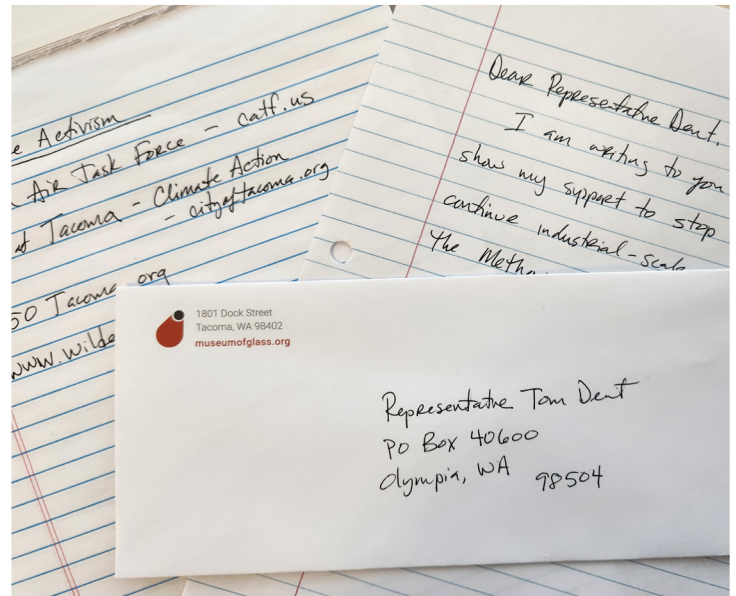 e Activism
Air Task Force - catf.us
of Tacoma - Climate Action
- cityoftacoma.org
50 Tacoma.org
www.wilde
Dear Representative Dent,
I am writing to you
show my support to stop
continue industrial-scale
the Metha
1801 Dock Street
Tacoma, WA 98402
museumofglass.org
Representative Tom Dent
PO Box 40600
Olympia, WA 98504